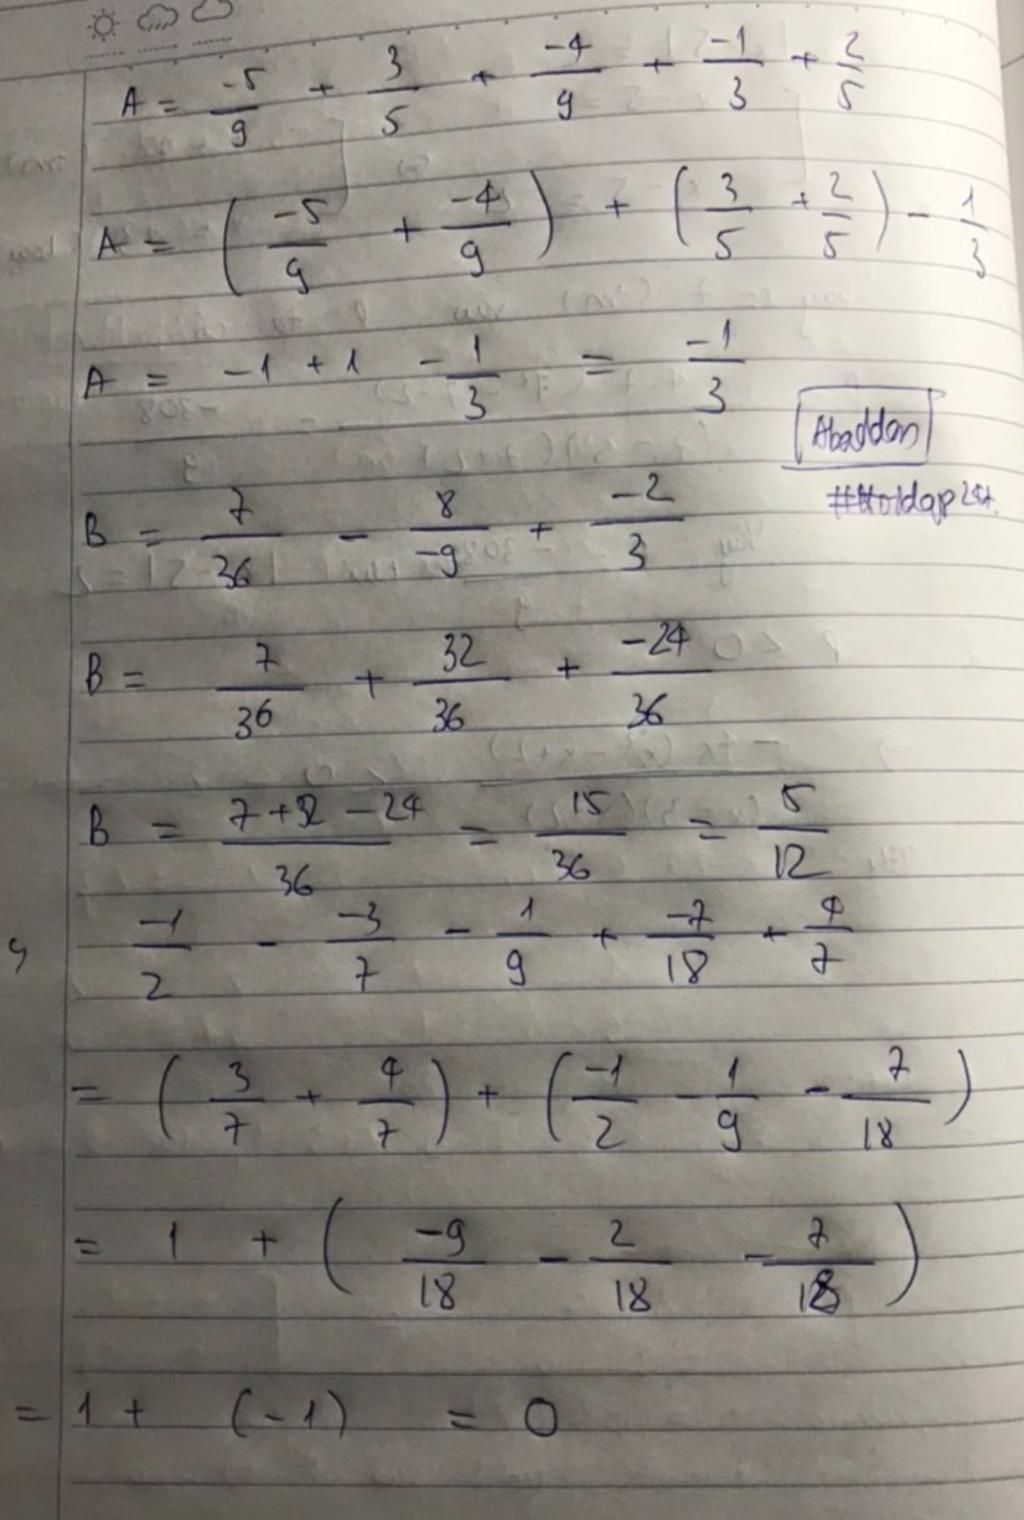 A = -5/9 + 3/5 + -4/9 + -1/3 + 2/5
A = (-5/9 + -4/9) + (3/5 + 2/5) - 1/3
A = -1 + 1 - 1/3 = -1/3
Abaddon
B = 7/36 - 8/-9 + -2/3
B = 7/36 + 32/36 + -24/36
B = 7+32-24/36 = 15/36 = 5/12
-1/2 - -3/7 - 1/9 + -7/18 + 4/7
= (3/7 + 4/7) + (-1/2 - 1/9 - 7/18)
= 1 + (-9/18 - 2/18 - 7/18)
= 1 + (-1) = 0